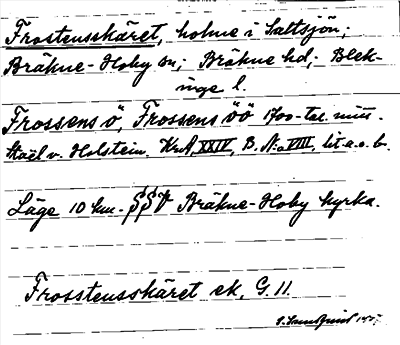 Frostensskäret, holme i Saltsjön;
Bräkne-Hoby sn; Bräkne hd; Blek-
inge l.
Frossens ö, Frossens öö 1700-tal.
Staël v. Holstein. KrA, XXIV, B. N:o VIII, lit. a. o. b.
Läge 10 km. SSV Bräkne-Hoby kyrka.
Frosstensskäret ek. G. 11.